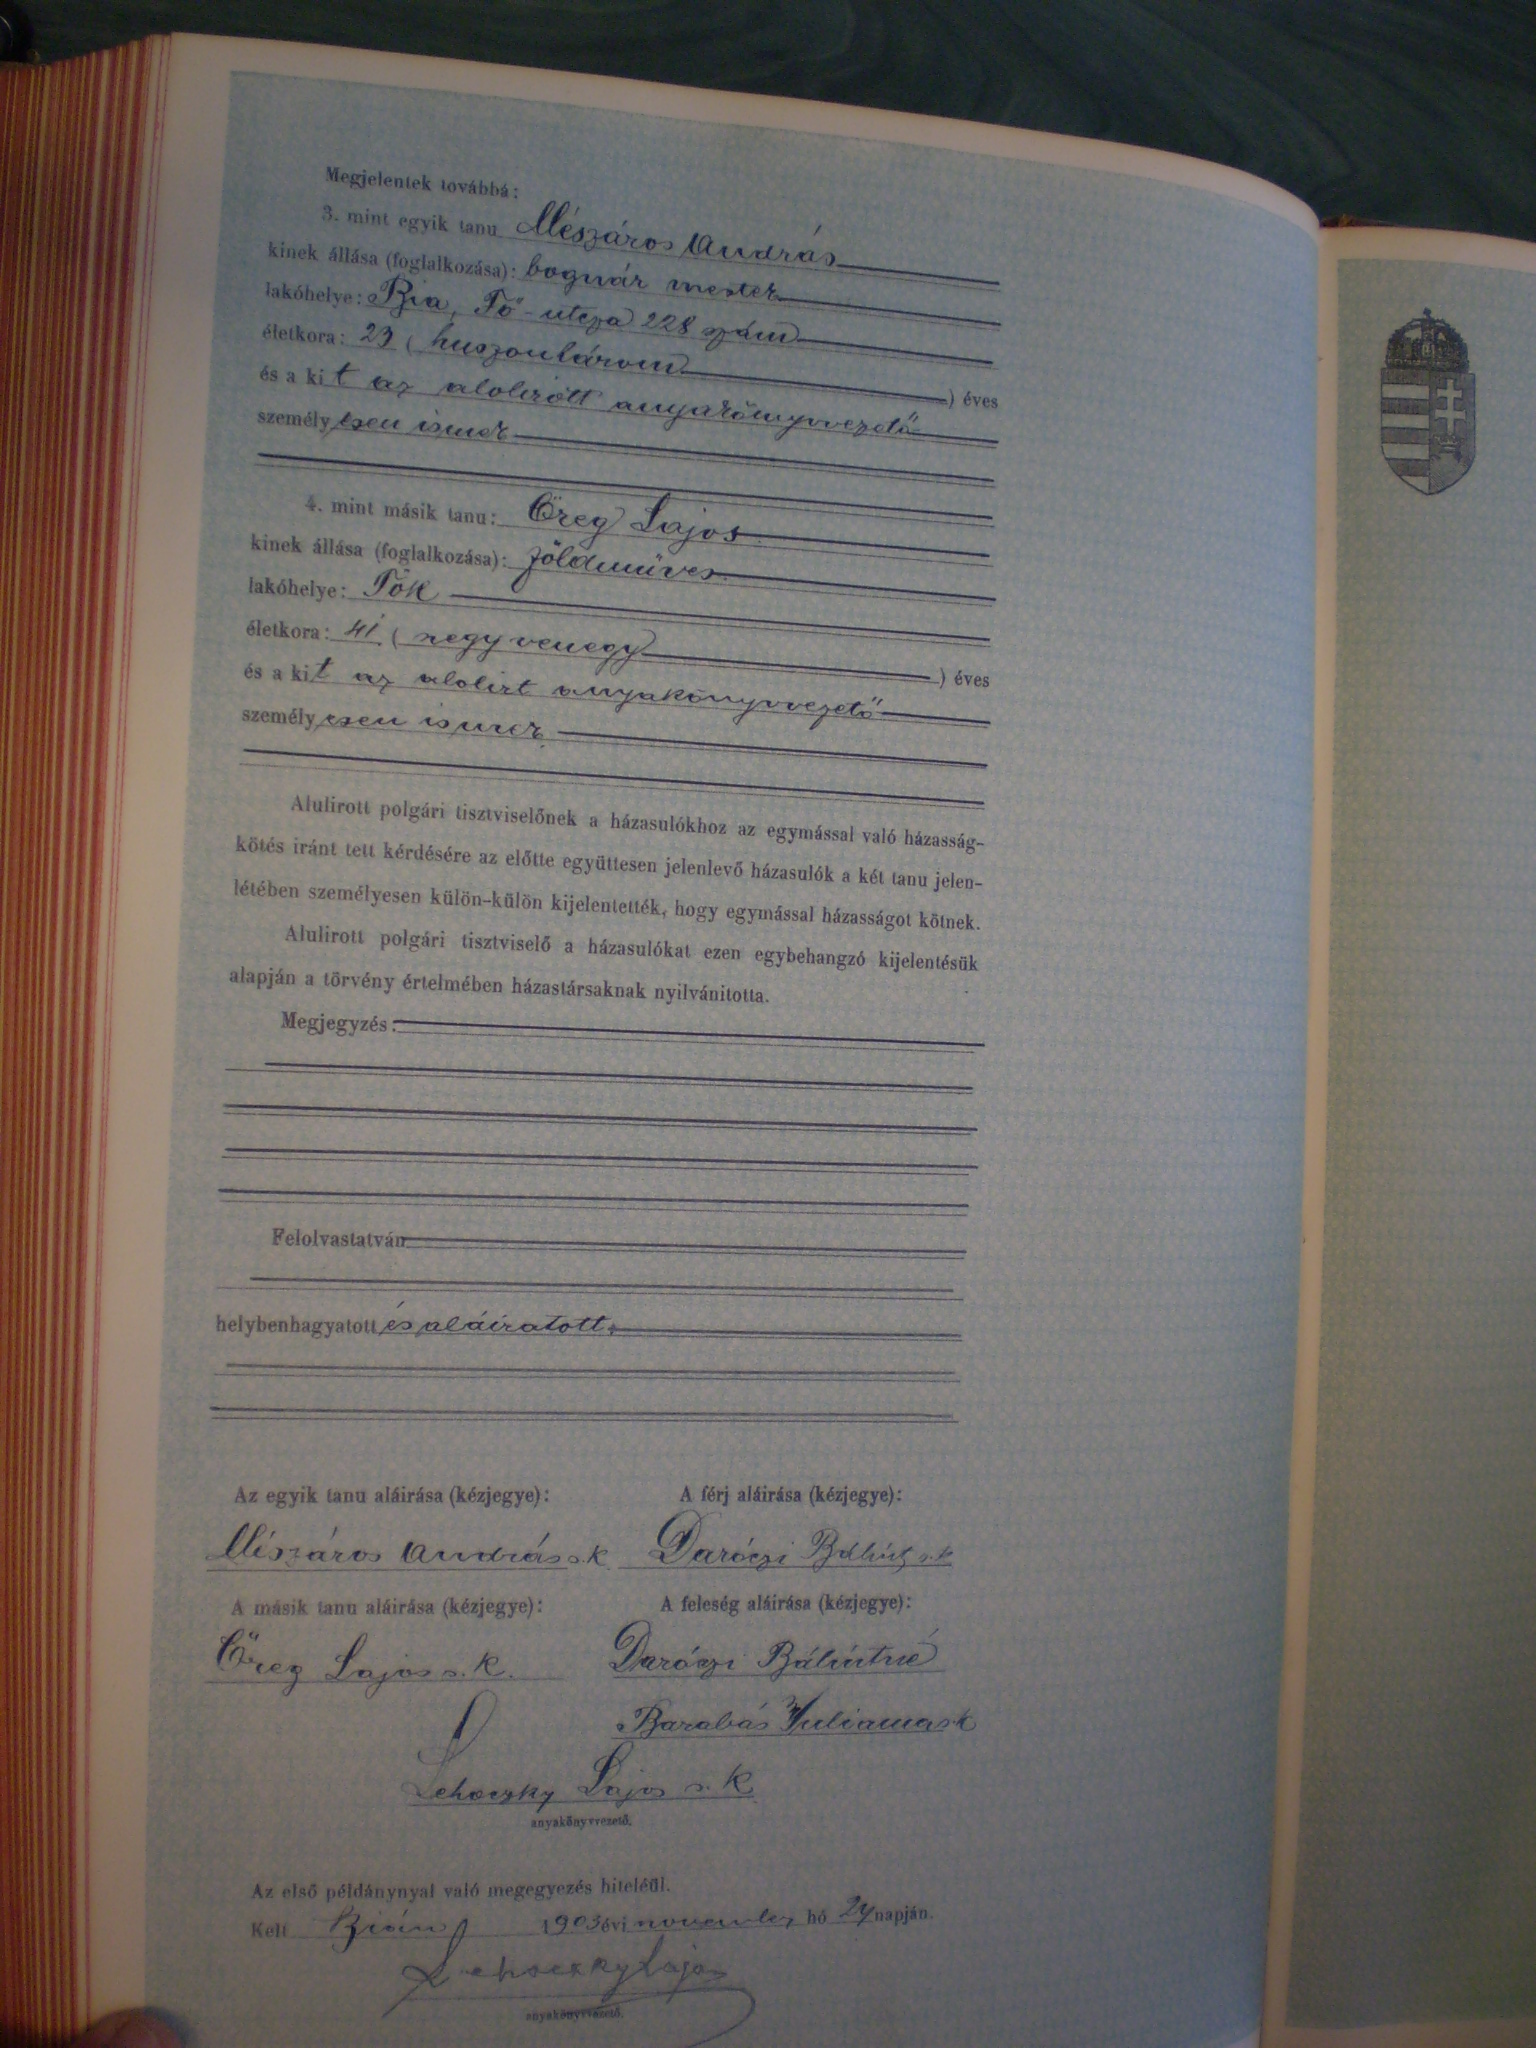 Megjelentek továbbá:
3. mint egyik tanu Mészáros András
kinek állása (foglalkozása): bognár mester
lakóhelye: Bia, Fő-utcza 228 szám
életkora: 23 (huszonhárom ) éves
és a kit az alolirott anyakönyvvezető
személyesen ismer
4. mint másik tanu: Öreg Lajos
kinek állása (foglalkozása): földmüves
lakóhelye: Tök
életkora: 41 (negyvenegy ) éves
és a kit az alolirt anyakönyvvezető
személyesen ismer
Alulirott polgári tisztviselőnek a házasulókhoz az egymással való házasság-
kötés iránt tett kérdésére az előtte együttesen jelenlevő házasulók a két tanu jelen-
létében személyesen külön-külön kijelentették, hogy egymással házasságot kötnek.
Alulirott polgári tisztviselő a házasulókat ezen egybehangzó kijelentésük
alapján a törvény értelmében házastársaknak nyilvánitotta.
Megjegyzés:
Felolvastatván
helybenhagyatott és aláiratott.
Az egyik tanu aláirása (kézjegye): A férj aláirása (kézjegye):
Mészáros András s. k. Daróczi Bálint s. k.
A másik tanu aláirása (kézjegye): A feleség aláirása (kézjegye):
Öreg Lajos s. k. Daróczi Bálintné
Barabás Julianna s. k.
Lehoczky Lajos s. k.
anyakönyvvezető.
Az első példánynyal való megegyezés hiteléül.
Kelt Bián 1903 évi november hó 24 napján.
Lehoczky Lajos
anyakönyvvezető.